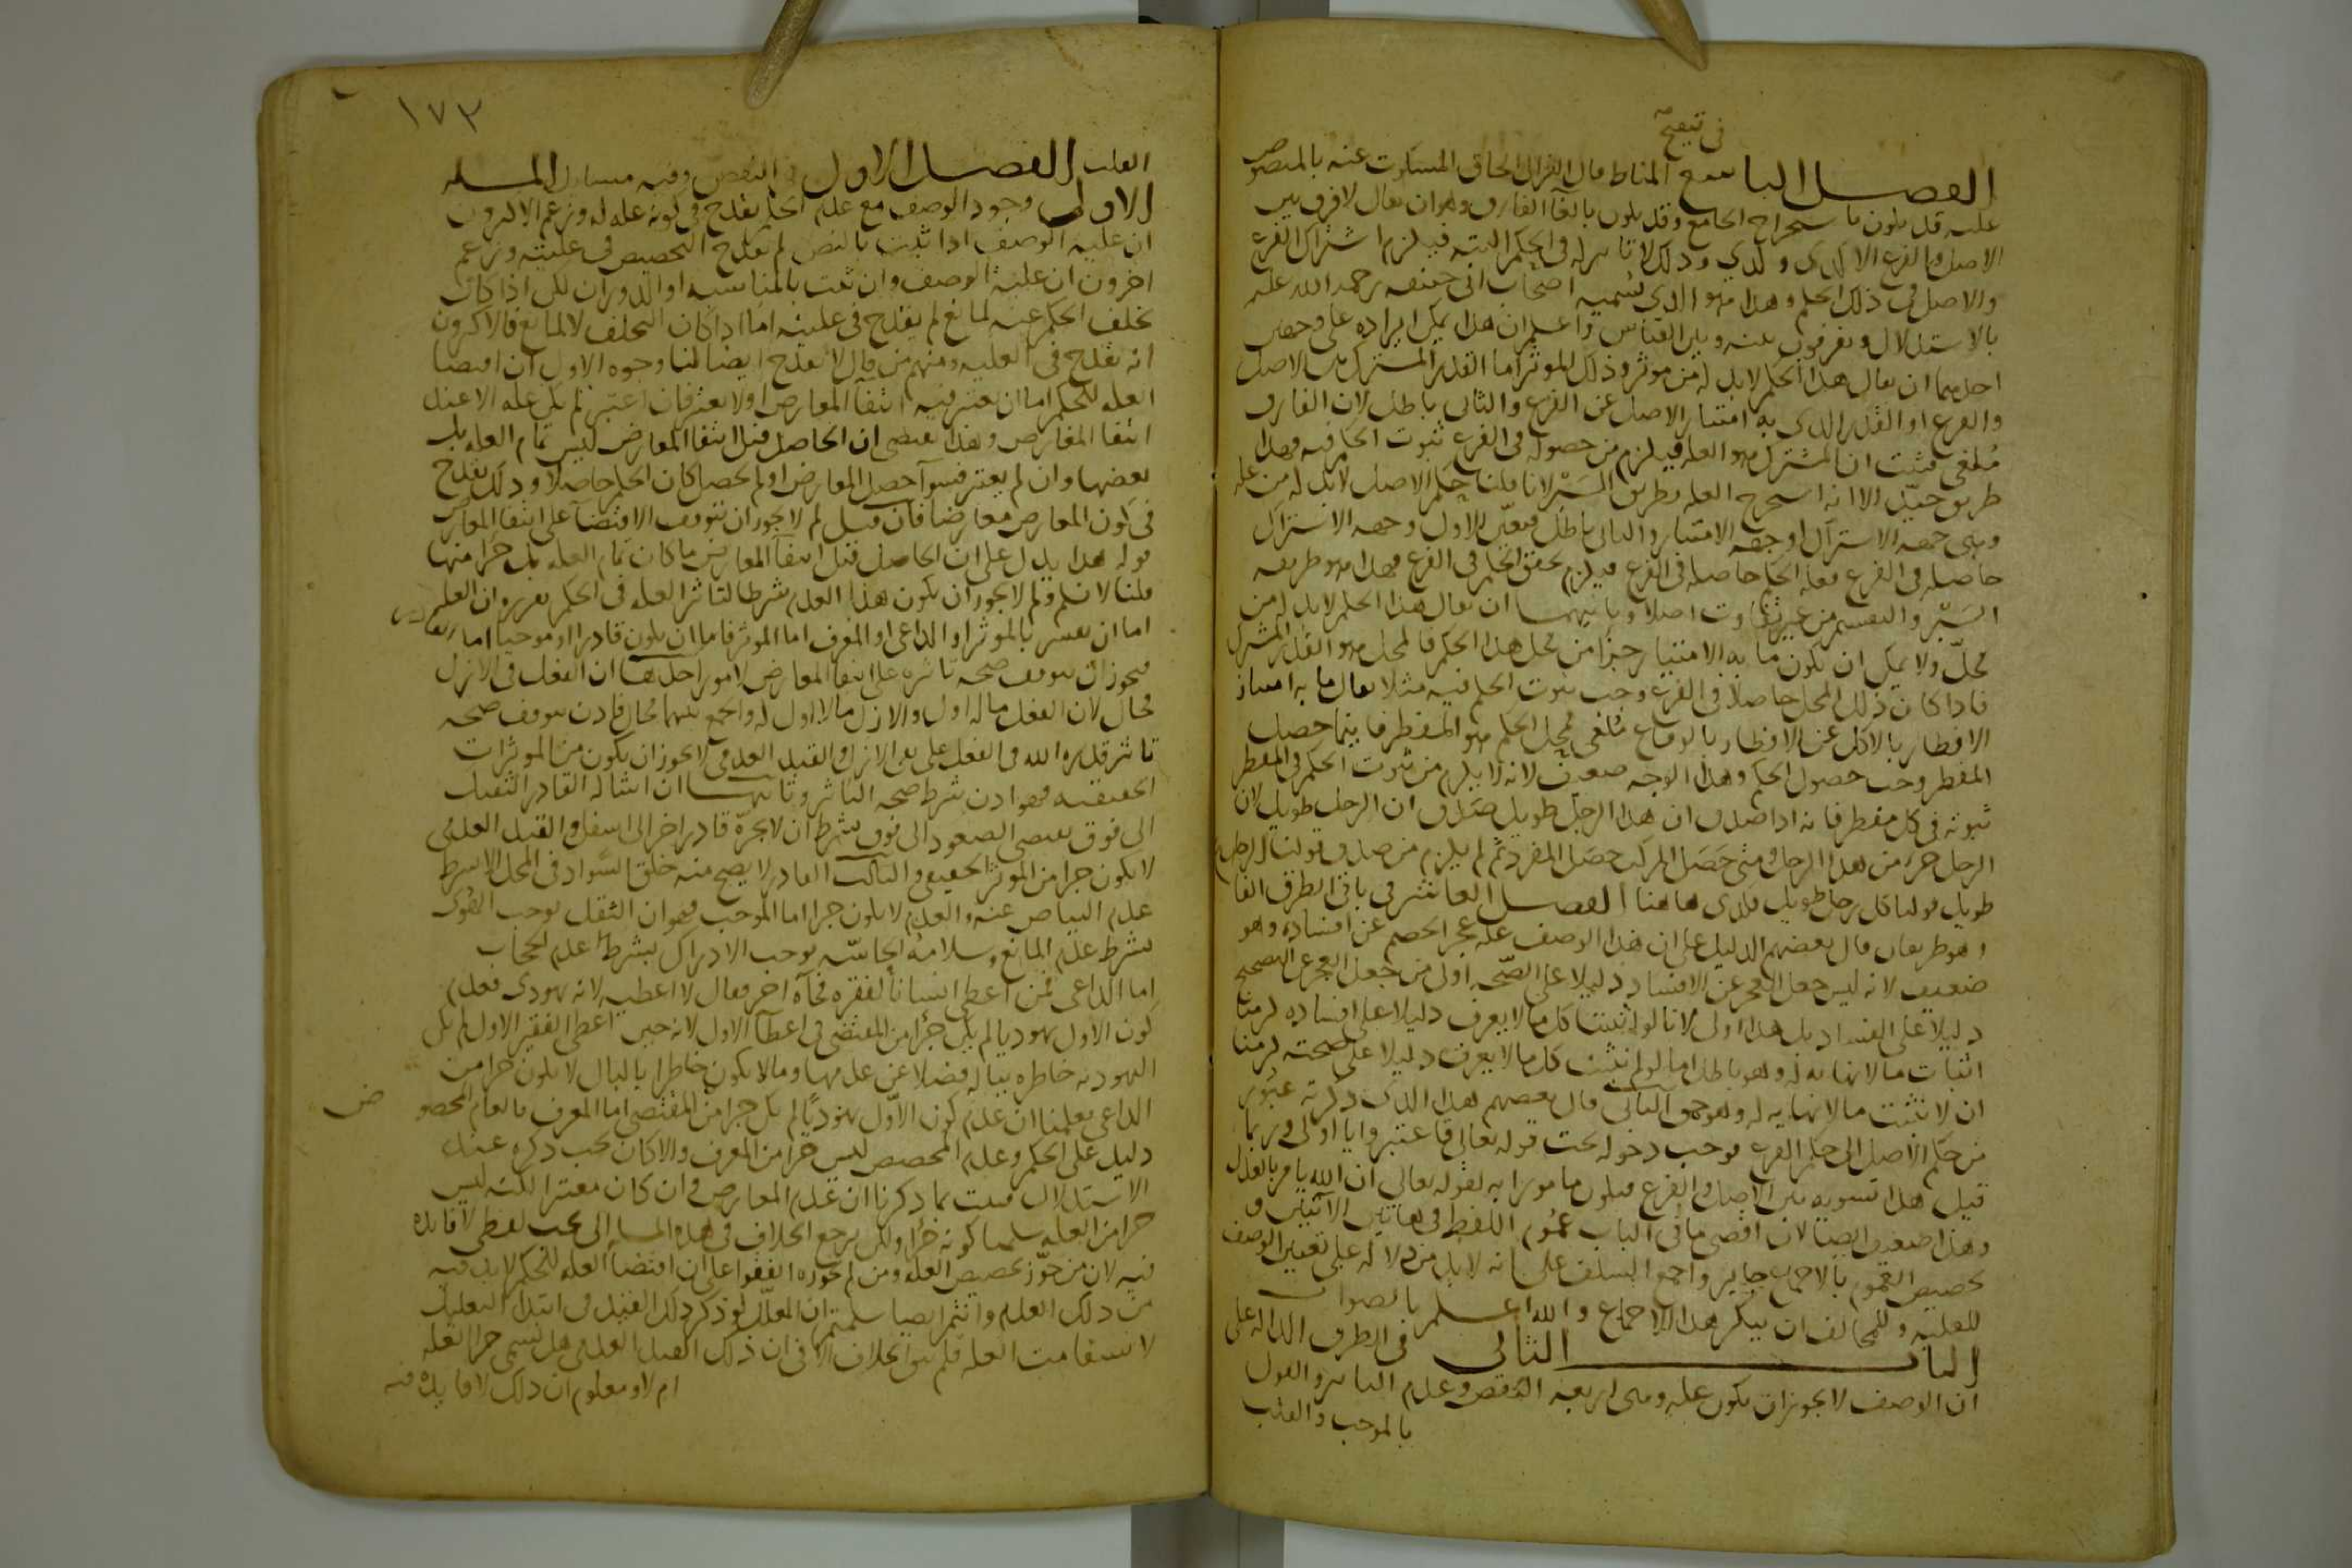 في تنقيح
الفصل التاسع المناط قال الغزالي الحاق المسكوت عنه بالمنصوص
عليه قد يكون باستخراج الجامع وقد يكون بالغاء الفارق وهو ان يقال لا فرق بين
الاصل والفرع الا كذى وكذى وذلك لا تاثير له في الحكم البتة فيلزم اشتراك الفرع
والاصل في ذلك الحكم وهذا هو الذي يسميه اصحاب ابي حنيفه رحمة الله عليه
بالاستدلال ويفرقون بينه وبين القياس واعلم ان هذا يمكن ايراده على وجهين
احدهما ان يقال هذا الحكم لابد له من موثر وذلك الموثر اما القدر المشترك بين الاصل
والفرع او القدر الذي به امتياز الاصل عن الفرع والثاني باطل لان الفارق
ملغى فثبت ان المشترك هو العله فيلزم من حصوله في الفرع ثبوت الحكم فيه فهذا
طريق جيد الا انه استخرج العله بطريق السبر لانا قلنا حكم الاصل لابد له من عله
وهي جهة الاشتراك او جهة الامتياز والثاني باطل فتعين الاول وجهة الاشتراك
حاصله في الفرع فعلة الحكم حاصله في الفرع فيلزم تحقق الحكم في الفرع فهذا هو طريقه
السبر والتقسيم من غير تفاوت اصلا وثانيهما ان يقال هذا الحكم لابد له من
محل ولا يمكن ان يكون ما به الامتياز جزا من محل هذا الحكم فالمحل هو القدر المشترك
فاذا كان ذلك المحل حاصلا في الفرع وجب ثبوت الحكم فيه مثلا يقال ما به امتياز
الافطار بالاكل عن الافطار بالوقاع ملغى فمحل الحكم هو المفطر فاينما حصل
المفطر وجب حصول الحكم وهذا الوجه ضعيف لانه لا يلزم من ثبوت الحكم في المفطر
ثبوته في كل مفطر فانه اذا صدق ان هذا الرجل طويل صدق ان الرجل طويل لان
الرجل جزء من هذا الرجل ومتى حصل المركب حصل المفرد ثم لم يلزم من صدق قولنا الرجل
طويل قولنا كل رجل طويل فكذى هاهنا الفصل العاشر في باقي الطرق الفا
وهو طريقان قال بعضهم الدليل على ان هذا الوصف علة عجز الخصم عن افساده وهو
ضعيف لانه ليس جعل العجز عن الافساد دليلا على الصحه اولى من جعل العجز عن التصحيح
دليلا على الفساد بل هذا اولى لانا لو اثبتنا كل ما لا يعرف دليلا على افساده لزمنا
اثبات ما لا نهايه له وهو باطل اما لو لم نثبت كل ما لا يعرف دليلا على صحته لزمنا
ان لا نثبت ما لا نهايه له وهو حق الثاني قال بعضهم هذا الذي ذكرته عبور
من حكم الاصل الى حكم الفرع فوجب دخوله تحت قوله تعالى فاعتبروا يا اولي وربما
قيل هذا تسويه بين الاصل والفرع فيكون مامورا به لقوله تعالى ان الله يامر بالعدل
وهذا ضعيف ايضا لان اقصى ما في الباب عموم اللفظ في هاتين الآيتين و
تخصيص العموم بالاجماع جايز واجمع السلف على انه لابد من دلالة على تعيين الوصف
للعليه وللمخالف ان ينكر هذا الاجماع والله اعلم بالصواب
الباب الثاني في الطرق الداله على
ان الوصف لا يجوز ان يكون عله وهي اربعه النقض وعدم التاثير والقول
بالموجب والقلب
١٧٣
القلب الفصل الاول في النقض وفيه مسايل المسله
الاولى وجود الوصف مع عدم الحكم يقدح في كونه عله له وزعم الاكثرون
ان علية الوصف اذا ثبت بالنص لم يقدح التخصيص في عليته وزعم
اخرون ان علية الوصف وان ثبت بالمناسبه او الدوران لكن اذا كان
تخلف الحكم عنه لمانع لم يقدح في عليته اما اذا كان التخلف لا لمانع فالاكثرون
انه يقدح في العليه ومنهم من قال لا يقدح ايضا لنا وجوه الاول ان اقتضا
العله للحكم اما ان يعتبر فيه انتفآ المعارض او لا يعتبر فان اعتبر لم يكن عله الا عند
انتفا المعارض وهذا يقتضي ان الحاصل قبل انتفا المعارض ليس تمام العله بل
بعضها وان لم يعتبر فسوآ حصل المعارض او لم يحصل كان الحكم حاصلا وذلك يقدح
في كون المعارض معارضا فان قيل لم لا يجوز ان يتوقف الاقتضا على انتفا المعارض
قوله هذا يدل على ان الحاصل قبل انتفآ المعارض ما كان تمام العله بل جزا منها
قلنا لا نسلم ولم لا يجوز ان يكون هذا العدم شرطا لتاثير العله في الحكم تقريره ان العلة
اما ان تفسر بالموثر او الداعي او المعرف اما الموثر فاما ان يكون قادرا او موجبا اما القادر
فيجوز ان يتوقف صحة تاثيره على انتفا المعارض لامور احدها ان الفعل في الازل
محال لان الفعل ما له اول والازل ما لا اول له والجمع بينهما محال فاذن يتوقف صحة
تاثير قدرة الله في الفعل على نفي الازل والقيد العدمي لا يجوز ان يكون من الموثرات
الحقيقيه فهو اذن شرط صحة التاثير وثانيهما ان اشالة القادر الثقيل
الى فوق يقتضي الصعود الى فوق بشرط ان لا يجره قادر اخر الى اسفل والقيد العدمي
لا يكون جزا من الموثر الحقيقي والثالث القادر لا يصح منه خلق السواد في المحل الا بشرط
عدم البياض عنه والعدم لا يكون جزا اما الموجب فهو ان الثقل يوجب الهوى
بشرط عدم المانع وسلامة الحاسه توجب الادراك بشرط عدم الحجاب
اما الداعي فمن اعطى انسانا لفقره فجآه اخر فقال لا اعطيه لانه يهودي فعدم
كون الاول يهوديا لم يكن جزا من المقتضى في اعطآ الاول لانه حين اعطى الفقير الاول لم تكن
اليهوديه خاطره بباله فضلا عن عدمها وما لا يكون خاطرا بالبال لا يكون جزا من
الداعي فعلمنا ان عدم كون الاول يهوديا لم يكن جزا من المقتضى اما المعرف فالعام المخصو
ص
دليل على الحكم وعدم المخصص ليس جزا من المعرف والا كان يجب ذكره عند
الاستدلال فثبت بما ذكرنا ان عدم المعارض وان كان معتبرا لكنه ليس
جزا من العله سلمنا كونه جزا ولكن يرجع الخلاف في هذه المسله الى بحث لفظي لا فايدة
فيه لان من جوز تخصيص العله ومن لم يجوزه اتفقوا على ان اقتضآ العله للحكم لابد فيه
من ذلك العدم وانتم ايضا سلمتم ان المعلل لو ذكر ذلك القيد في ابتداء التعليل
لاستقامت العله فلم يبق الخلاف الا في ان ذلك القيد العدمي هل يسمى جزا العله
ام لا ومعلوم ان ذلك لا فايدة فيه